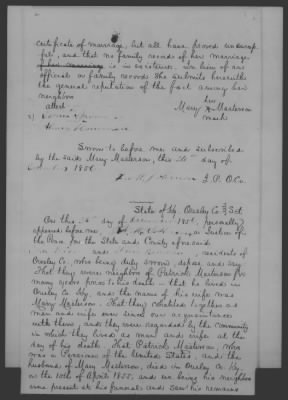 certificate of marriage, but all have proved unsuccess-
ful, and that no family records of her marriage,
of her marriage is in existence. In lieu of any
official or family record she submits herewith
the general reputation of the fact among her
neighbors
attest her
Mary X Masterson
mark
Sworn to before me and subscribed
by the said Mary Masterson, this day of
1856
J. P. O. Co.
State of Ky. Owsley Co. Sct
On this day of 1856, personally
appeared before me, a Justice of
the Peace for the State and County aforesaid
residents of
Owsley Co, who being duly sworn, depose and say
That they were neighbors of Patrick Masterson for
many years prior to his death — that he lived in
Owsley Co Ky, and the name of his wife was
Mary Masterson. That they cohabited together as
man and wife ever since our acquaintance
with them, and they were regarded by the community
in which they lived as man and wife at the
day of his death. That Patrick Masterson, who
was a Pensioner of the United States, and the
husband of Mary Masterson, died in Owsley Co. Ky
on the 10th of April 1855, and we being his neighbors
were present at his funeral and saw his remains